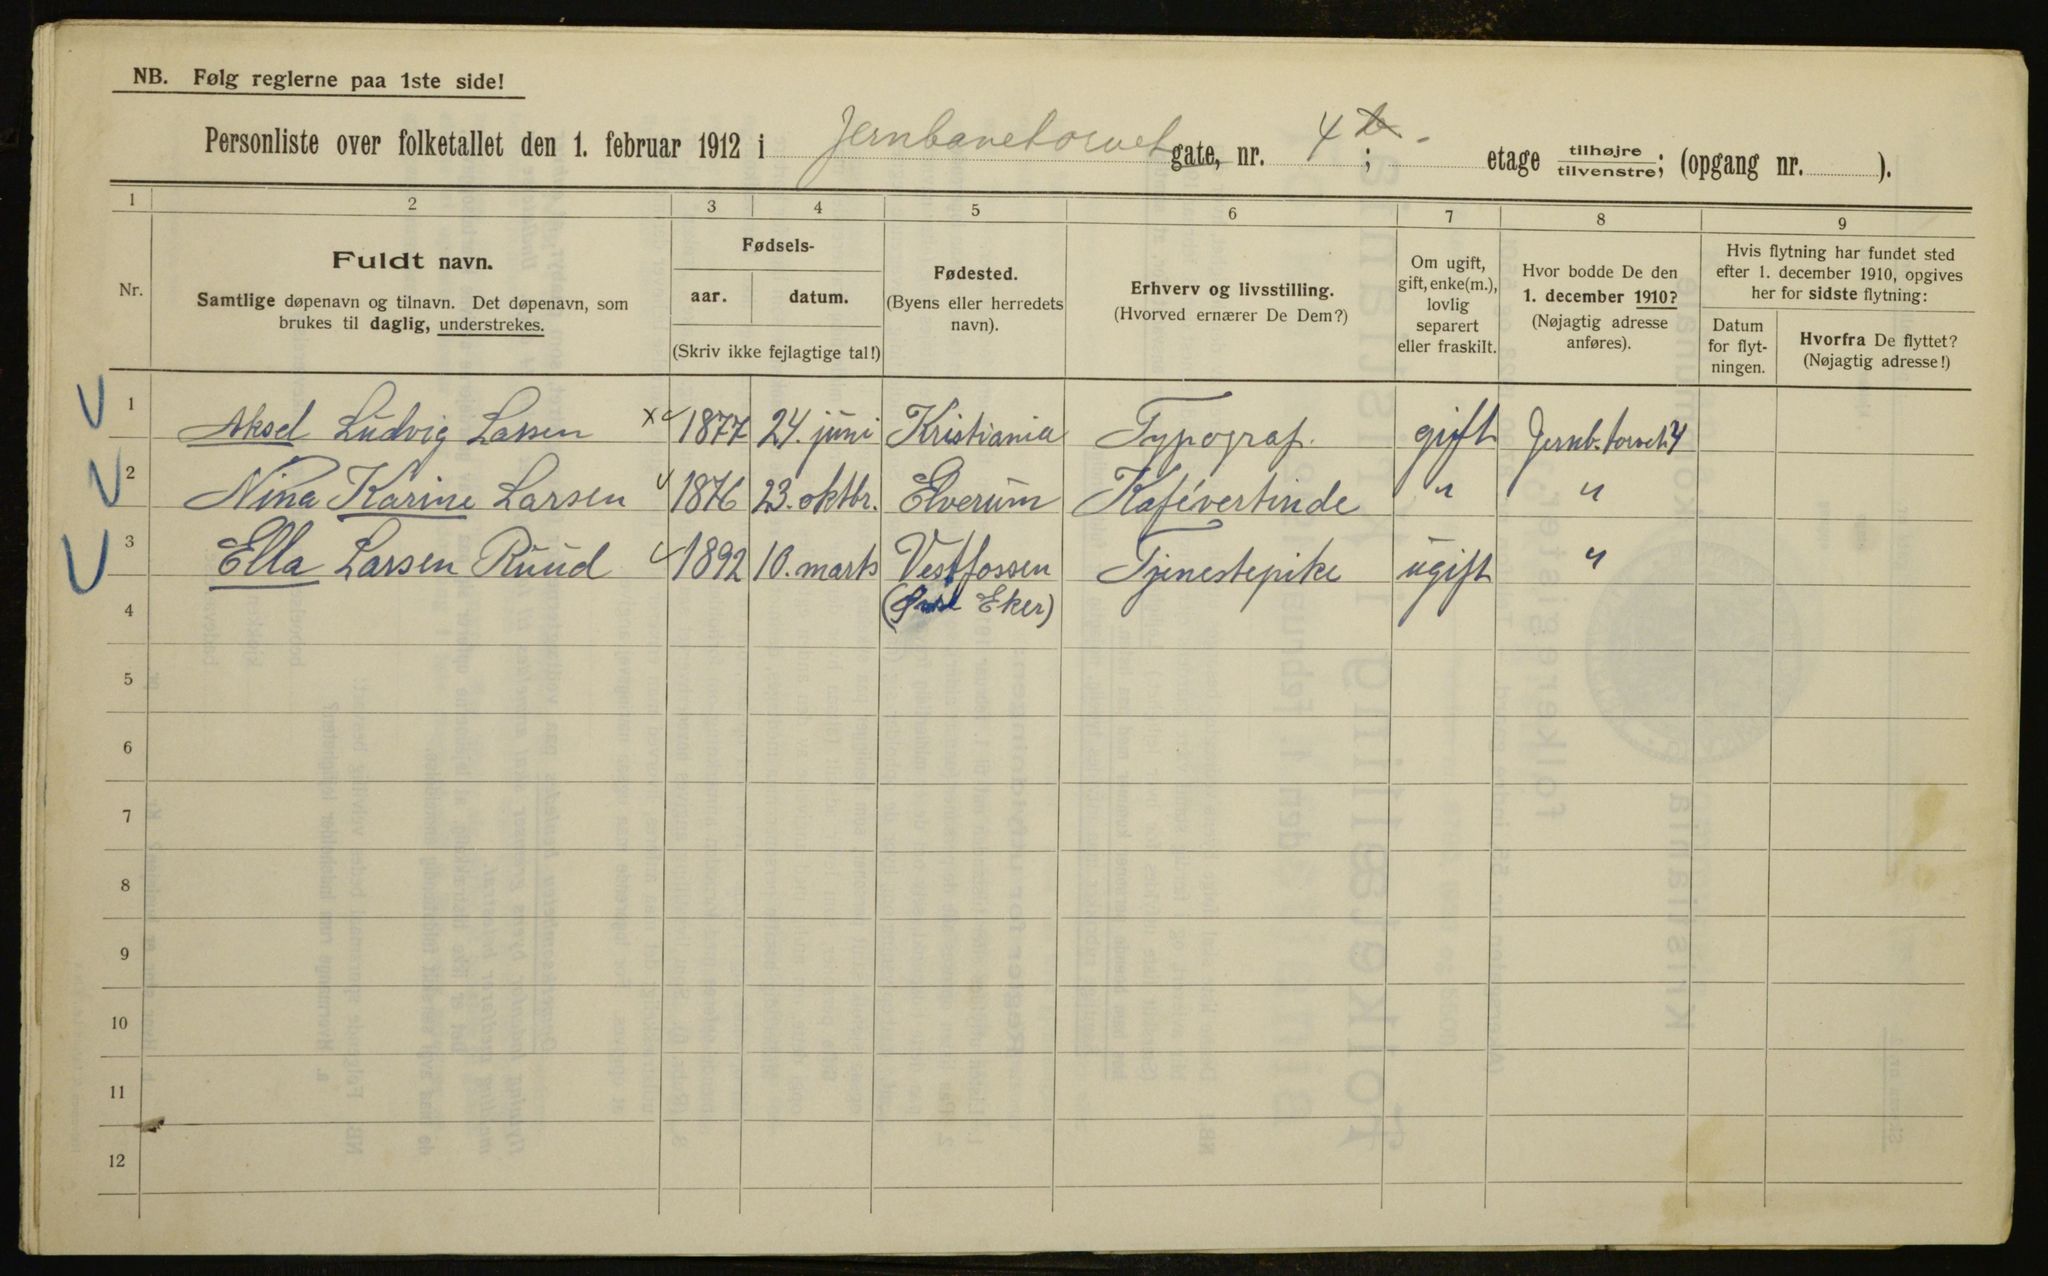 NB. Følg reglerne paa 1ste side!
Personliste over folketallet den 1. februar 1912 i Jernbanetorvet gate, nr. 4 ; etage tilhøjre tilvenstre; (opgang nr. ).
1 2 3 4 5 6 7 8 9
Nr.
Fuldt navn.
Samtlige døpenavn og tilnavn. Det døpenavn, som
brukes til daglig, understrekes.
Fødsels-
aar. datum.
(Skriv ikke fejlagtige tal!)
Fødested.
(Byens eller herredets
navn).
Erhverv og livsstilling.
(Hvorved ernærer De Dem?)
Om ugift,
gift, enke(m.),
lovlig
separert
eller fraskilt.
Hvor bodde De den
1. december 1910?
(Nøjagtig adresse
anføres).
Hvis flytning har fundet sted
efter 1. december 1910, opgives
her for sidste flytning:
Datum
for flyt-
ningen.
Hvorfra De flyttet?
(Nøjagtig adresse!)
1 Aksel Ludvig Larsen 1877 24. juni Kristiania Typograf. gift Jernb.torvet 4
2 Nina Karine Larsen 1876 23. oktbr. Elverum Kafévertinde " "
3 Ella Larsen Ruud 1892 10. marts Vestfossen Tjenestepike ugift "
4 (Øvre Eker)
5
6
7
8
9
10
11
12